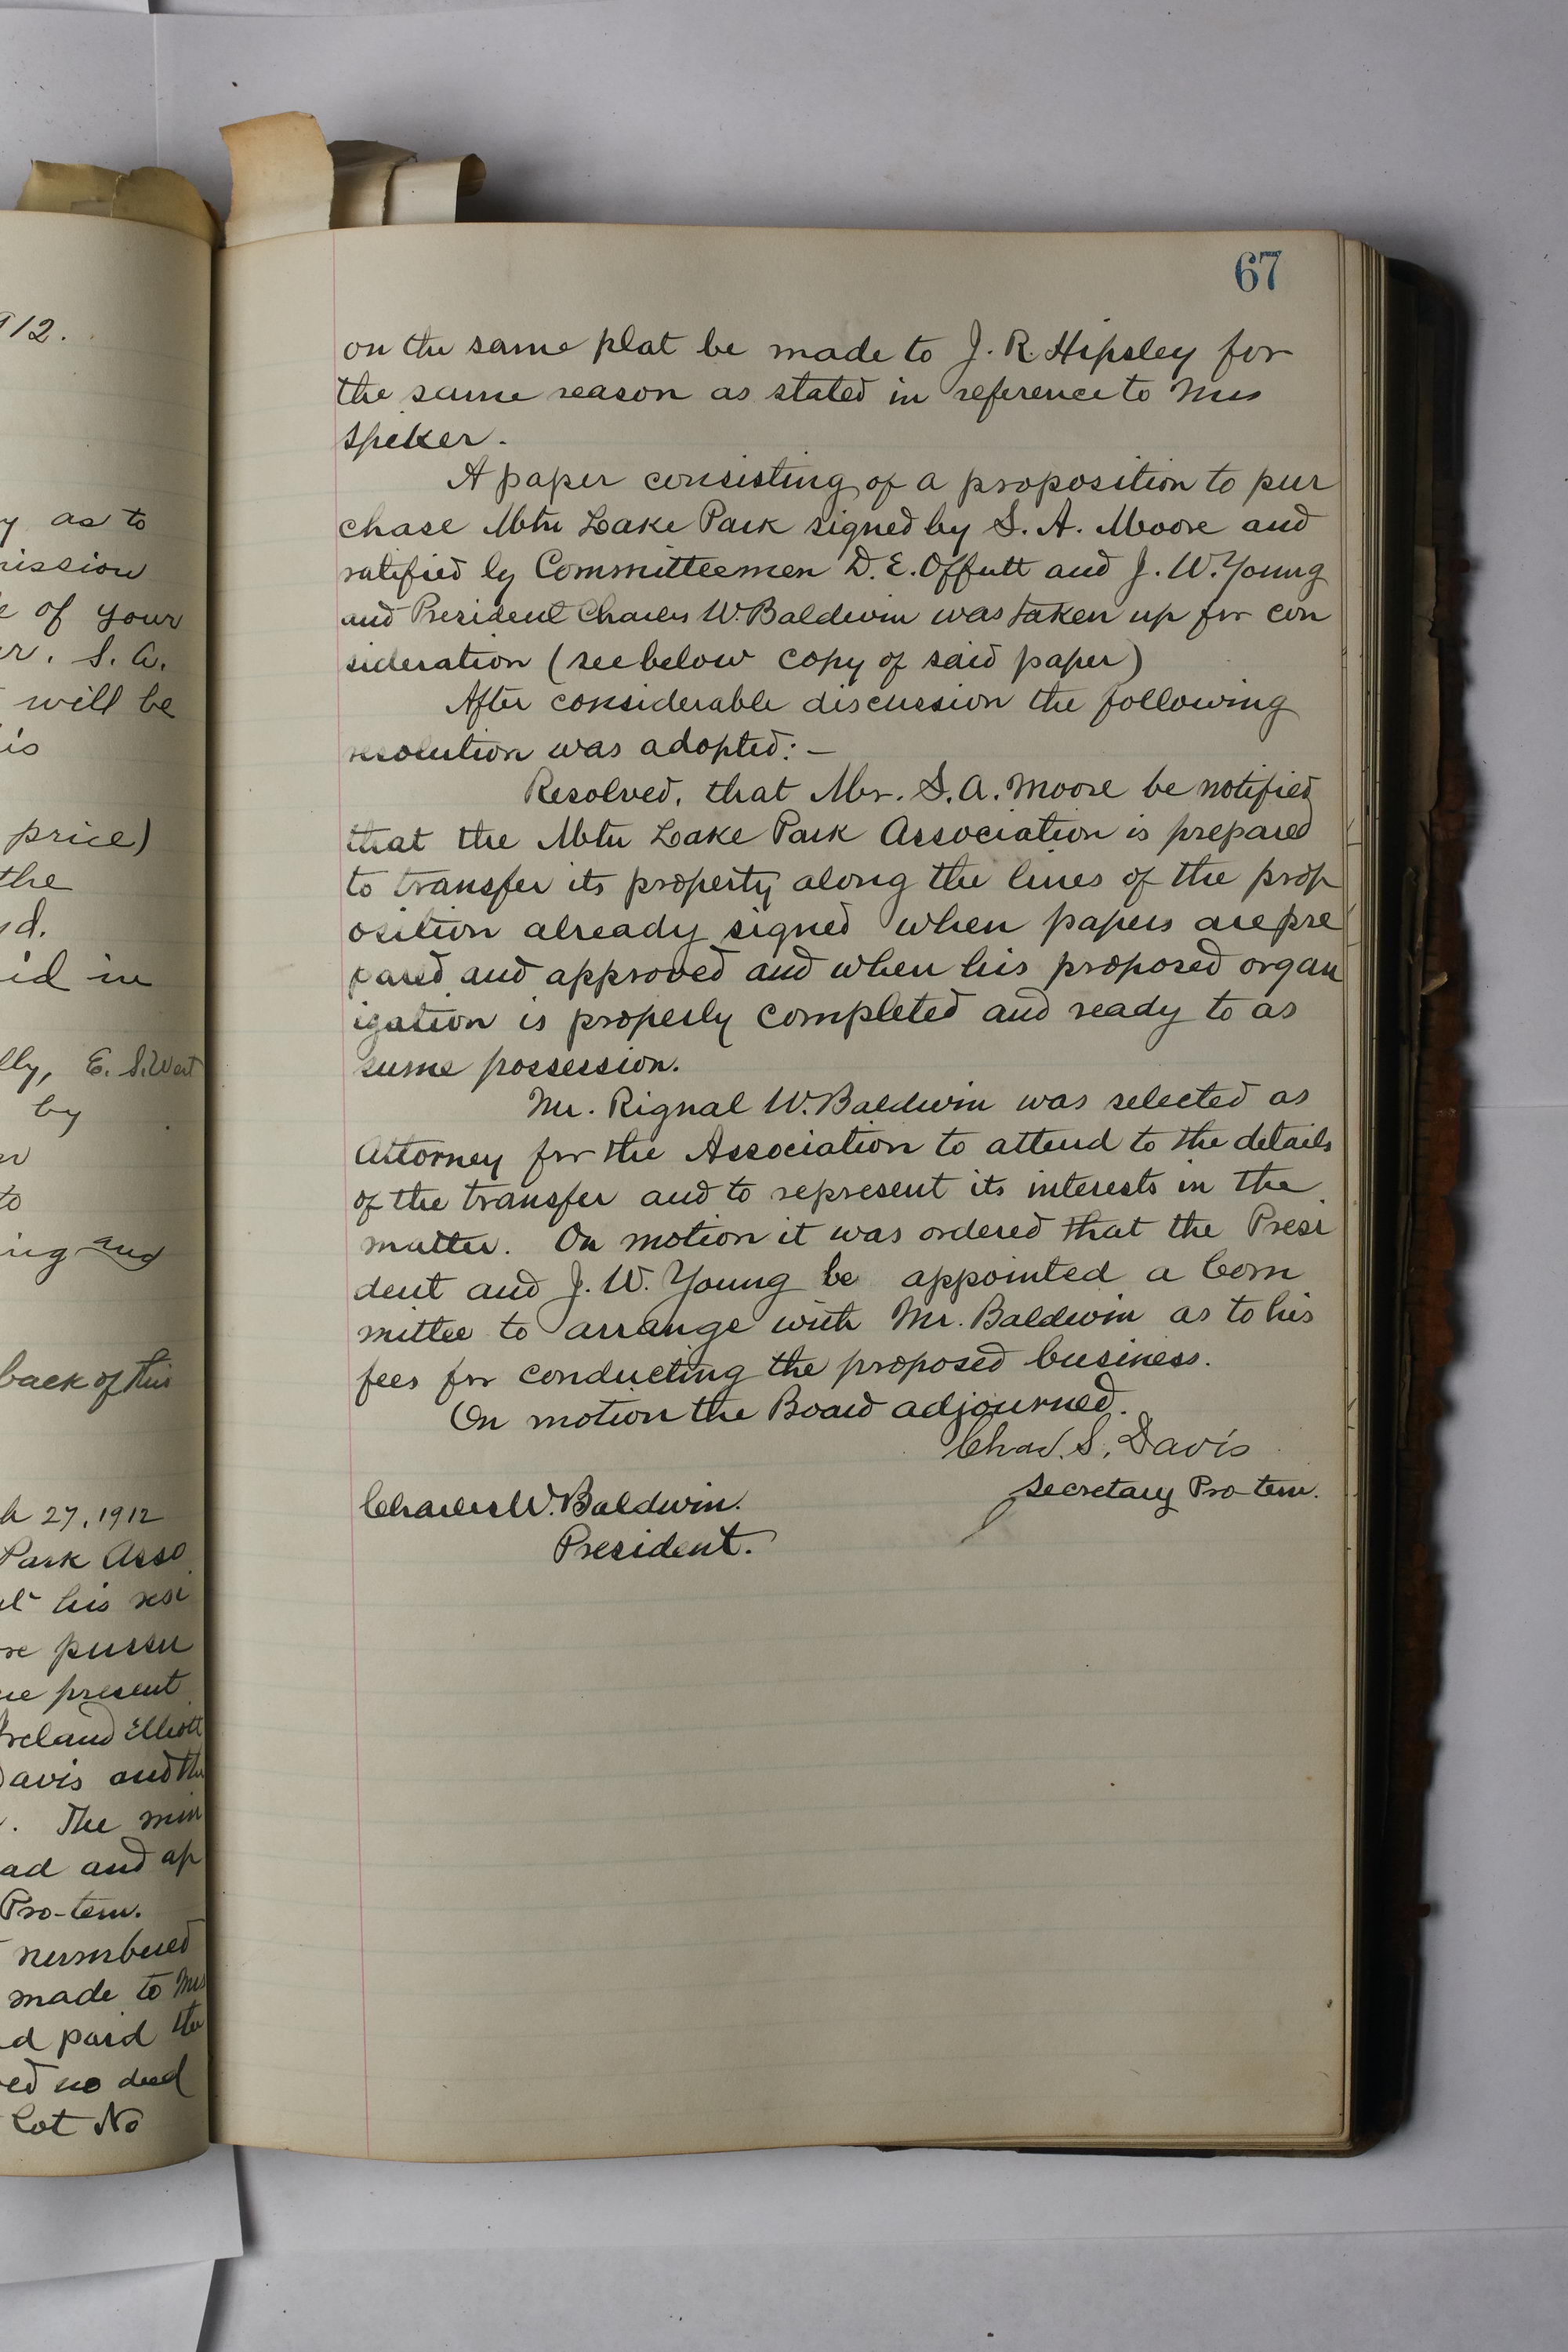 912.
y as to
mission
e of your
r. S. A.
will be
is
price)
the
d.
id in
lly, E. S. West
by
to
ing and
back of this
h 27, 1912
Park Asso
his resi
pursu
present
Ireland Elliott
Davis and the
. The min
ad and ap
Pro-tem.
numbered
made to Mrs
d paid the
ed no deed
Lot No
67
on the same plat be made to J. R. Hipsley for
the same reason as stated in reference to Mrs
Speker.
A paper consisting of a proposition to pur
chase Mtn Lake Park signed by S. A. Moore and
ratified by Committeemen D. E. Offutt and J. W. Young
and President Charles W. Baldwin was taken up for con
sideration (see below copy of said paper)
After considerable discussion the following
resolution was adopted: —
Resolved, that Mr. S. A. Moore be notified
that the Mtn Lake Park Association is prepared
to transfer its property along the lines of the prop
osition already signed when papers are pre
pared and approved and when his proposed organ
ization is properly completed and ready to as
sume possession.
Mr. Rignal W. Baldwin was selected as
Attorney for the Association to attend to the details
of the transfer and to represent its interests in the
matter. On motion it was ordered that the Presi
dent and J. W. Young be appointed a Com
mittee to arrange with Mr. Baldwin as to his
fees for conducting the proposed business.
On motion the Board adjourned.
Chas. S. Davis
Secretary Pro-tem.
Charles W. Baldwin.
President.